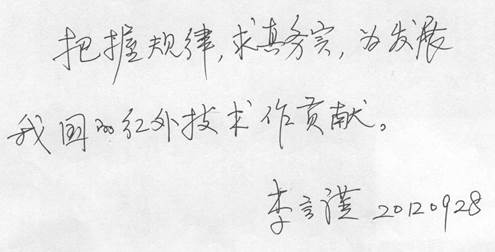 把握规律,求真务实,为发展
我国的红外技术作贡献。
李言谨 20120928